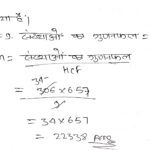 है।
संख्याओं का गुणनफल =
= संख्याओं का गुणनफल
HCF
34
= 306×657
9
= 34×657
= 22338 Ans